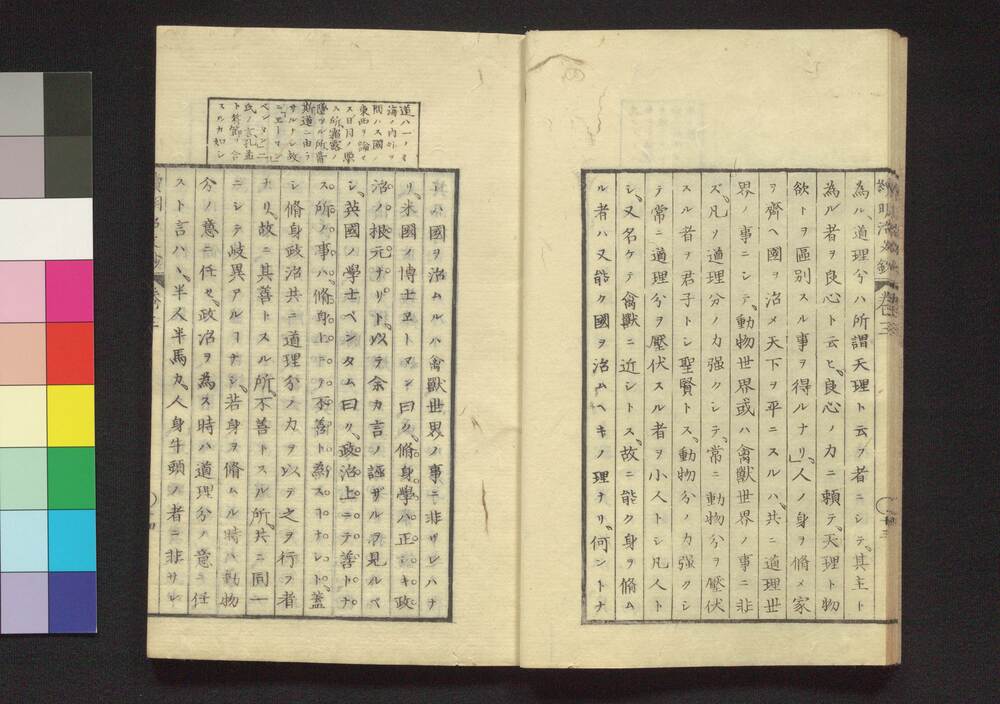 為ル、道理分ハ所謂天理ト云フ者ニシテ、其主ト
為ル者ヲ良心ト云ヒ、良心ノ力ニ頼テ、天理ト物
欲トヲ區別スル事ヲ得ルナリ」人ノ身ヲ脩メ家
ヲ齊ヘ國ヲ治メ天下ヲ平ニスルハ、共ニ道理世
界ノ事ニシテ、動物世界或ハ禽獸世界ノ事ニ非
ズ、凡ソ道理分ノ力強クシテ、常ニ動物分ヲ壓伏
スル者ヲ君子トシ聖賢トス、動物分ノ力強クシ
テ常ニ道理分ヲ壓伏スル者ヲ小人トシ凡人ト
シ、又名ケテ禽獸ニ近シトス、故ニ能ク身ヲ脩ム
ル者ハ又能ク國ヲ治ムヘキノ理ナリ、何ントナ
道ハ一ノミ
海ノ内外ヲ
問ハス國ノ
東西ヲ論セ
ス日月ノ照
ス所霜露ノ
墜ツル所皆
斯道ニ由ラ
サルナシ故
ニエトマン
ベンタム二
氏ノ言孔孟
ト符節ヲ合
スルカ如シ
レハ國ヲ治ムルハ禽獸世界ノ事ニ非サレハナ
リ、米國ノ博士エトマンン曰ク、脩身學ハ正シキ政
治ノ根元ナリト、以テ余カ言ノ誣ザルヲ見ルベ
シ、英國ノ學士ベンタム曰ク、政治上ニテ善トナ
ス所ノ事ハ、脩身上ニテ不善ト為スコナレト、蓋
シ脩身政治共ニ道理分ノ力ヲ以テ之ヲ行フ者
ナリ、故ニ其善トスル所、不善トスル所、共ニ同一
ニシテ岐異アルコナシ、若身ヲ脩ムル時ハ動物
分ノ意ニ任セ、政治ヲ為ス時ハ道理分ノ意ニ任
スト言ハヽ、半人半馬カ、人身牛頭ノ者ニ非サレ